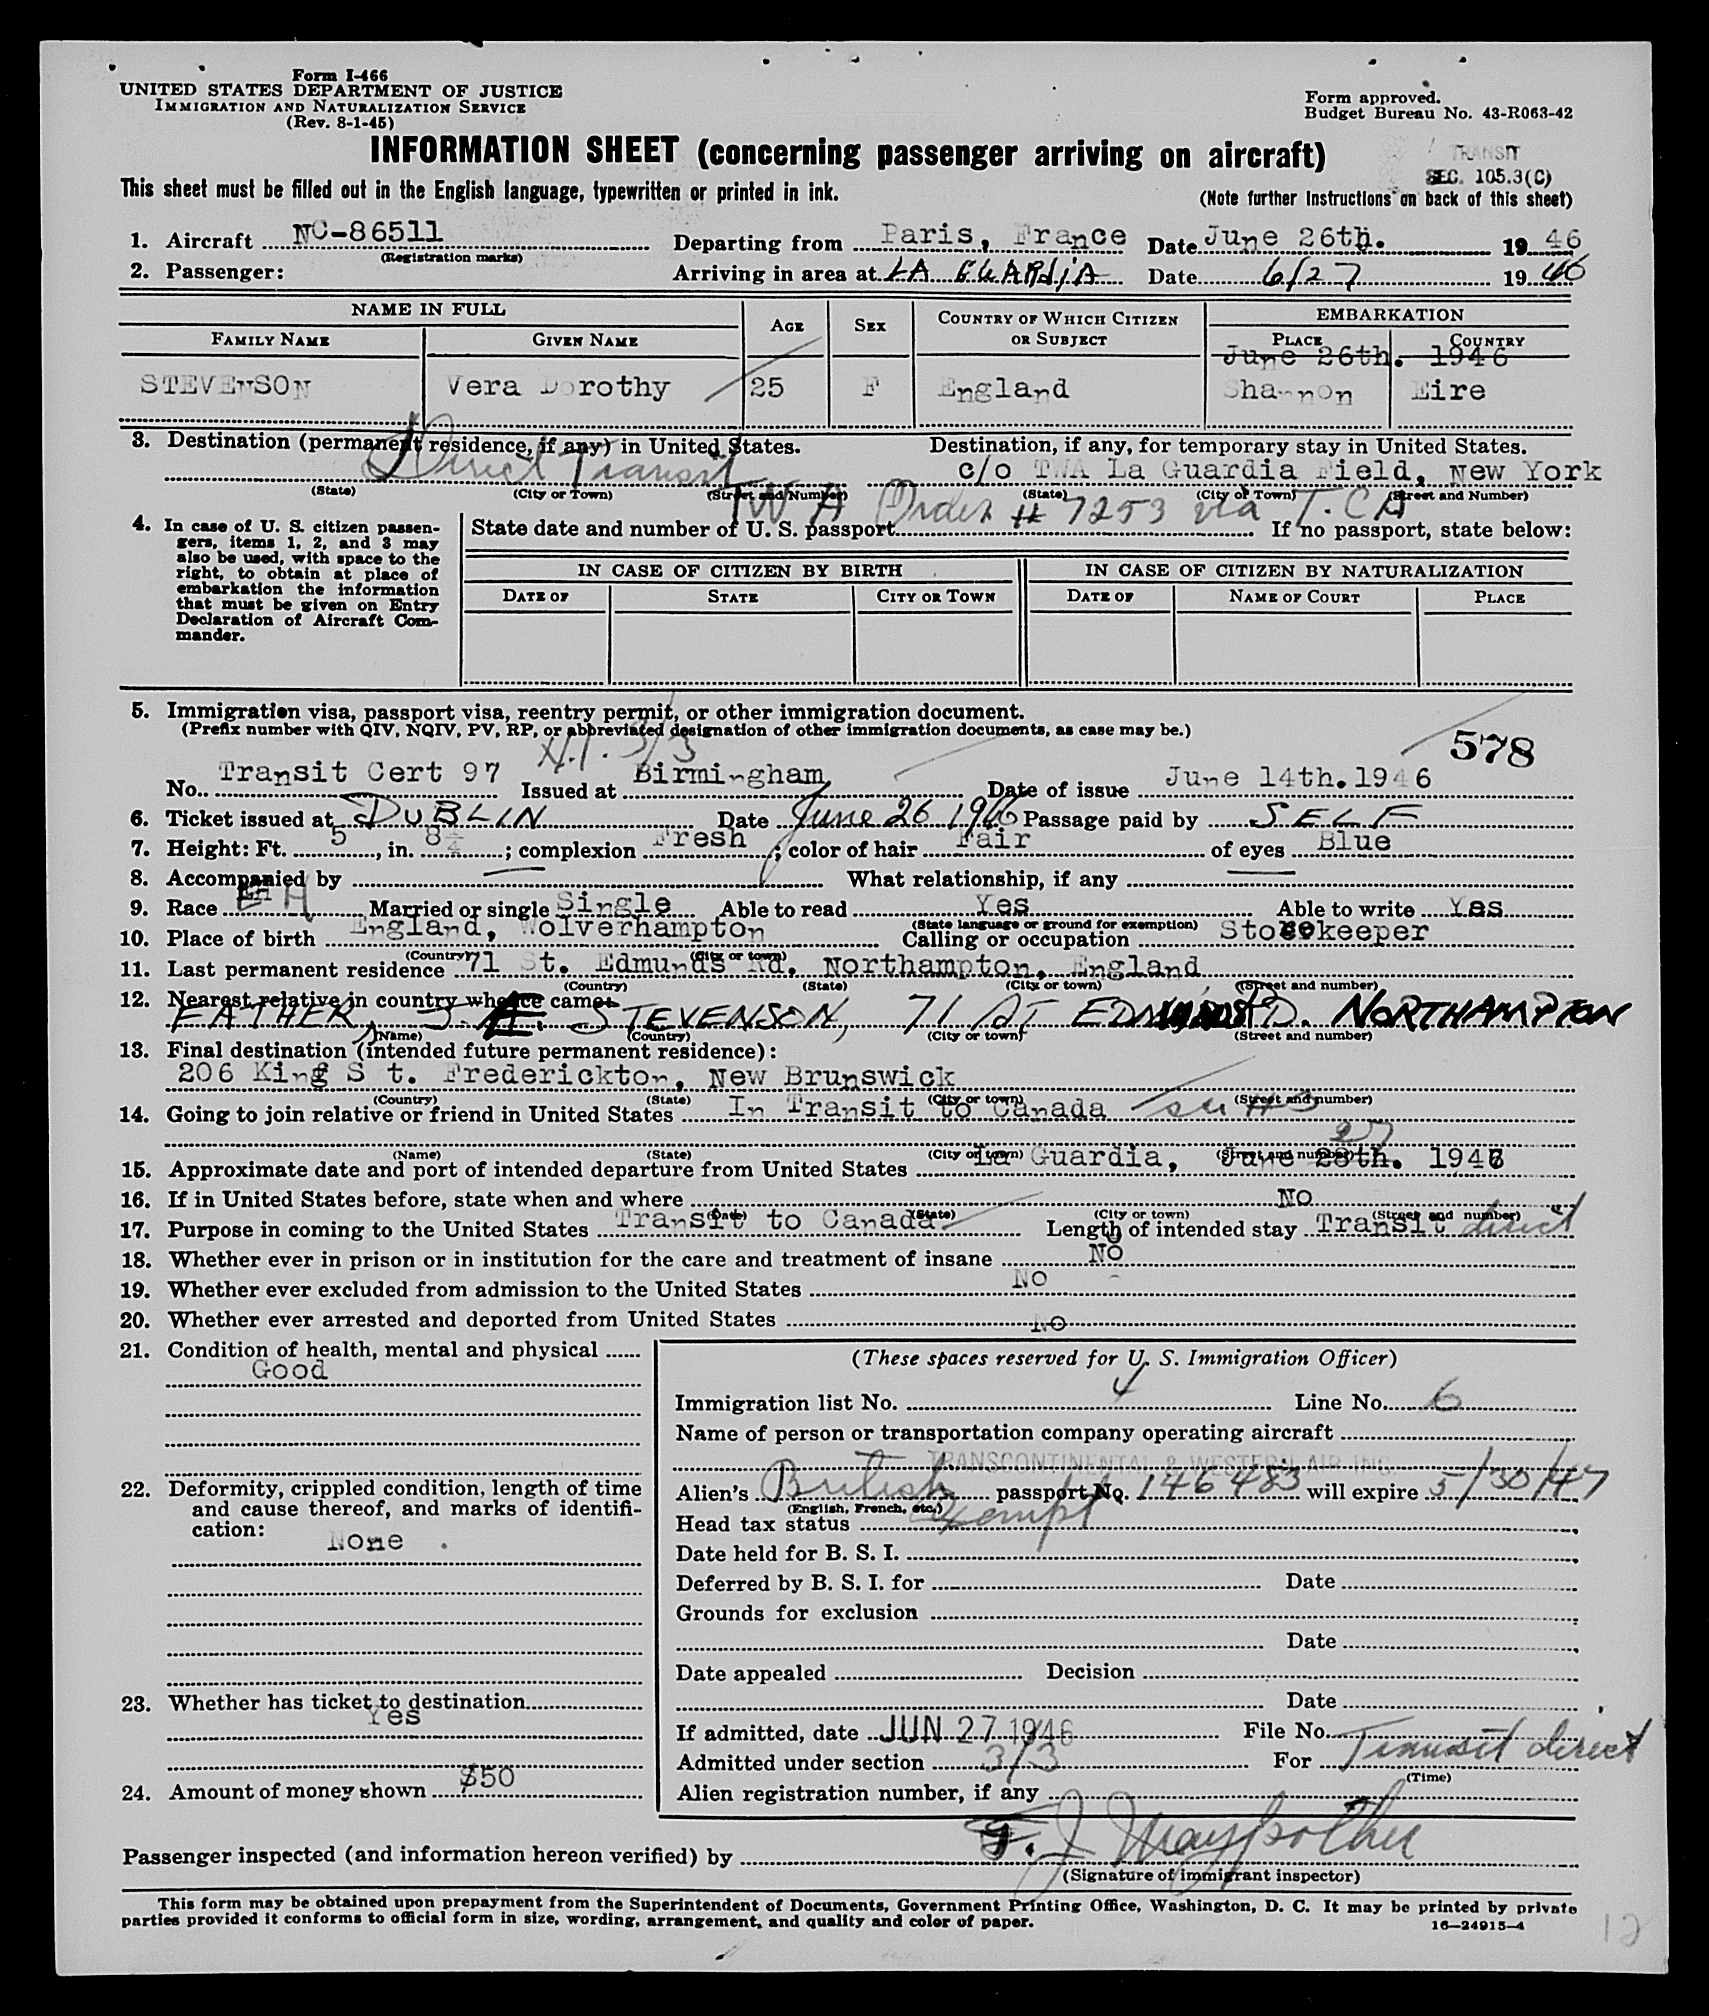 Form I-466
UNITED STATES DEPARTMENT OF JUSTICE
IMMIGRATION AND NATURALIZATION SERVICE
(Rev. 8-1-45)
Form approved.
Budget Bureau No. 43-R063-42
INFORMATION SHEET (concerning passenger arriving on aircraft)
TRANSIT
SEC. 105.3(C)
This sheet must be filled out in the English language, typewritten or printed in ink.
(Note further Instructions on back of this sheet)
1. Aircraft NC-86511 Departing from Paris, France Date June 26th. 1946
(Registration marks)
2. Passenger: Arriving in area at LA GUARDIA Date 6/27 1946
NAME IN FULL AGE SEX COUNTRY OF WHICH CITIZEN OR SUBJECT EMBARKATION
FAMILY NAME GIVEN NAME PLACE COUNTRY
June 26th. 1946
STEVENSON Vera Dorothy 25 F England Shannon Eire
3. Destination (permanent residence, if any) in United States. Destination, if any, for temporary stay in United States.
Direct Transit c/o TWA La Guardia Field, New York
(State) (City or Town) (Street and Number) (State) (City or Town) (Street and Number)
TWA Order # 7253 via T.C.A
4. In case of U. S. citizen passengers, items 1, 2, and 3 may also be used, with space to the right, to obtain at place of embarkation the information that must be given on Entry Declaration of Aircraft Commander.
State date and number of U. S. passport If no passport, state below:
IN CASE OF CITIZEN BY BIRTH IN CASE OF CITIZEN BY NATURALIZATION
DATE OF STATE CITY OR TOWN DATE OF NAME OF COURT PLACE
5. Immigration visa, passport visa, reentry permit, or other immigration document.
(Prefix number with QIV, NQIV, PV, RP, or abbreviated designation of other immigration documents, as case may be.)
3/3
578
No. Transit Cert 97 Issued at Birmingham Date of issue June 14th. 1946
6. Ticket issued at DUBLIN Date June 26 1946 Passage paid by SELF
7. Height: Ft. 5, in. 8¼; complexion Fresh; color of hair Fair of eyes Blue
8. Accompanied by — What relationship, if any —
9. Race Married or single Single Able to read Yes Able to write Yes
(State language or ground for exemption)
10. Place of birth England, Wolverhampton Calling or occupation Storekeeper
(Country) (City or town)
11. Last permanent residence 71 St. Edmunds Rd. Northampton, England
(Country) (State) (City or town) (Street and number)
12. Nearest relative in country whence came:
FATHER, J. A. STEVENSON, 71 ST EDMUNDS RD. NORTHAMPTON
(Name) (Country) (City or town) (Street and number)
13. Final destination (intended future permanent residence):
206 King S t. Frederickton, New Brunswick
(Country) (State) (City or town) (Street and number)
14. Going to join relative or friend in United States In Transit to Canada
(Name) (State) (City or town) (Street and number)
27
15. Approximate date and port of intended departure from United States La Guardia, June 28th. 1946
16. If in United States before, state when and where NO
(Date) (State) (City or town) (Street and number)
17. Purpose in coming to the United States Transit to Canada Length of intended stay Transit direct
18. Whether ever in prison or in institution for the care and treatment of insane No
19. Whether ever excluded from admission to the United States No
20. Whether ever arrested and deported from United States No
21. Condition of health, mental and physical
Good
22. Deformity, crippled condition, length of time and cause thereof, and marks of identification:
None .
23. Whether has ticket to destination
Yes
24. Amount of money shown $50
(These spaces reserved for U. S. Immigration Officer)
Immigration list No. 4 Line No. 6
Name of person or transportation company operating aircraft
TRANSCONTINENTAL & WESTERN AIR INC.
Alien's British passport No. 146483 will expire 5/30/47
(English, French, etc.)
Head tax status Exempt
Date held for B. S. I.
Deferred by B. S. I. for Date
Grounds for exclusion
Date
Date appealed Decision
Date
If admitted, date JUN 27 1946 File No.
Admitted under section 3/3 For Transit direct
(Time)
Alien registration number, if any
Passenger inspected (and information hereon verified) by
(Signature of immigrant inspector)
This form may be obtained upon prepayment from the Superintendent of Documents, Government Printing Office, Washington, D. C. It may be printed by private
parties provided it conforms to official form in size, wording, arrangement, and quality and color of paper.
16—24915-4
12